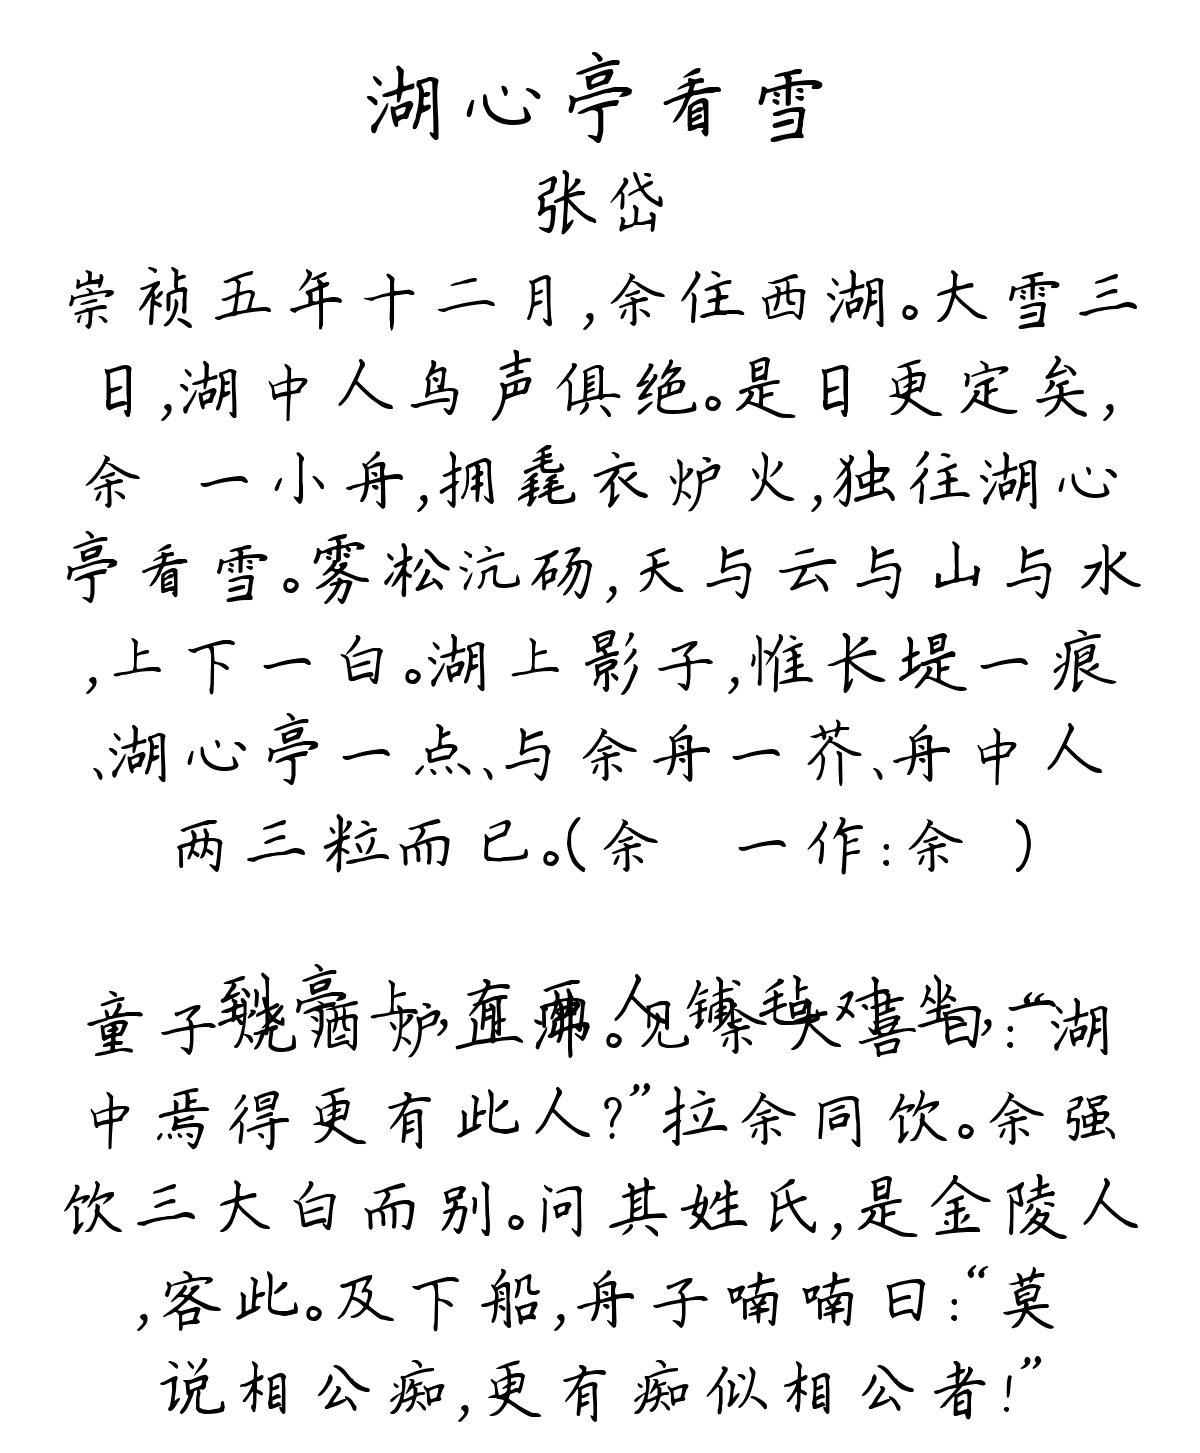 湖心亭看雪
张岱
崇祯五年十二月,余住西湖。大雪三
日,湖中人鸟声俱绝。是日更定矣,
余 一小舟,拥毳衣炉火,独往湖心
亭看雪。雾凇沆砀,天与云与山与水
,上下一白。湖上影子,惟长堤一痕
、湖心亭一点、与余舟一芥、舟中人
两三粒而已。(余 一作:余 )
到亭上,有两人铺毡对坐,一
童子烧酒炉正沸。见余大喜曰:“湖
中焉得更有此人?”拉余同饮。余强
饮三大白而别。问其姓氏,是金陵人
,客此。及下船,舟子喃喃曰:“莫
说相公痴,更有痴似相公者!”